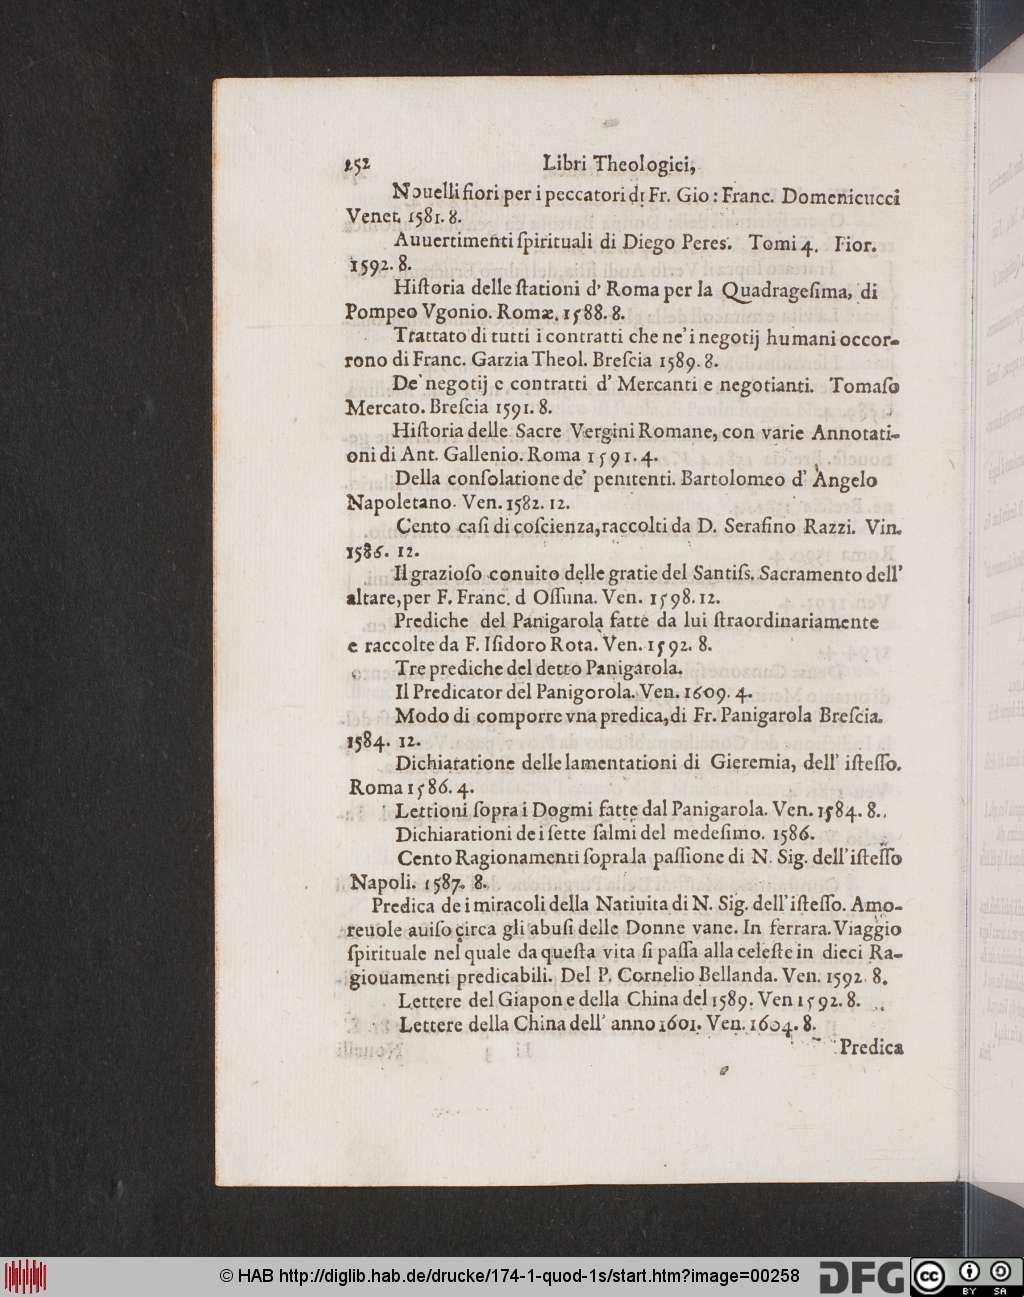 252 Libri Theologici,
Nouelli fiori per i peccatori di Fr. Gio: Franc. Domenicucci
Venet. 1581. 8.
Auuertimenti ſpirituali di Diego Peres. Tomi 4. Fior.
1592. 8.
Hiſtoria delle ſtationi d' Roma per la Quadrageſima, di
Pompeo Vgonio. Romæ. 1588. 8.
Trattato di tutti i contratti che ne' i negotij humani occor-
rono di Franc. Garzia Theol. Breſcia 1589. 8.
De' negotij e contratti d' Mercanti e negotianti. Tomaſo
Mercato. Breſcia 1591. 8.
Hiſtoria delle Sacre Vergini Romane, con varie Annotati-
oni di Ant. Gallenio. Roma 1591. 4.
Della conſolatione de' penitenti. Bartolomeo d' Angelo
Napoletano. Ven. 1582. 12.
Cento caſi di coſcienza, raccolti da D. Serafino Razzi. Vin.
1586. 12.
Il grazioſo conuito delle gratie del Santiſs. Sacramento dell'
altare, per F. Franc. d Oſſuna. Ven. 1598. 12.
Prediche del Panigarola fatte da lui ſtraordinariamente
e raccolte da F. Iſidoro Rota. Ven. 1592. 8.
Tre prediche del detto Panigarola.
Il Predicator del Panigorola. Ven. 1609. 4.
Modo di comporre vna predica, di Fr. Panigarola Breſcia.
1584. 12.
Dichiaratione delle lamentationi di Gieremia, dell' iſteſſo.
Roma 1586. 4.
Lettioni ſopra i Dogmi fatte dal Panigarola. Ven. 1584. 8.
Dichiarationi de i ſette ſalmi del medeſimo. 1586.
Cento Ragionamenti ſopra la paſſione di N. Sig. dell' iſteſſo
Napoli. 1587. 8.
Predica de i miracoli della Natiuita di N. Sig. dell' iſteſſo. Amo-
reuole auiſo circa gli abuſi delle Donne vane. In ferrara. Viaggio
ſpirituale nel quale da queſta vita ſi paſſa alla celeſte in dieci Ra-
giouamenti predicabili. Del P. Cornelio Bellanda. Ven. 1592. 8.
Lettere del Giapon e della China del 1589. Ven 1592. 8.
Lettere della China dell' anno 1601. Ven. 1604. 8.
Predica
© HAB http://diglib.hab.de/drucke/174-1-quod-1s/start.htm?image=00258
DFG
cc BY SA